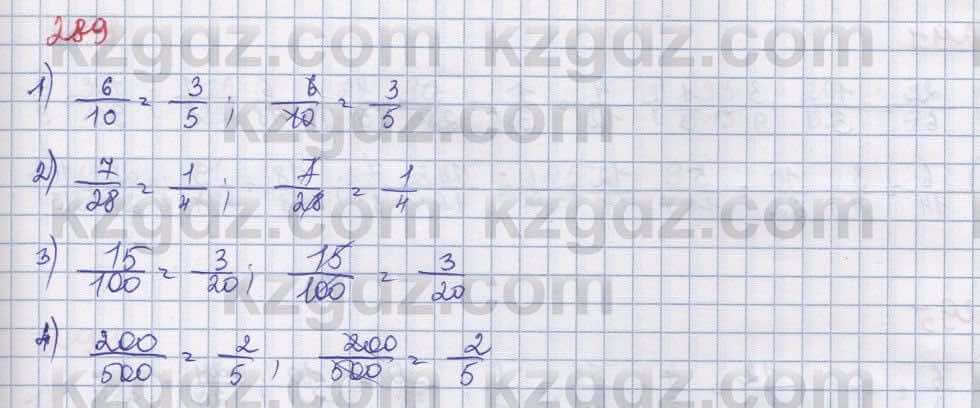 289
kzgdz.com kzgdz.com
1) 6/10 = 3/5 ; 6/10 = 3/5
kzgdz.com
2) 7/28 = 1/4 ; 7/28 = 1/4
kzgdz.com kzgdz.com
3) 15/100 = 3/20 ; 15/100 = 3/20
kzgdz.com
4) 200/500 = 2/5 ; 200/500 = 2/5
kzgdz.com kzgdz.com